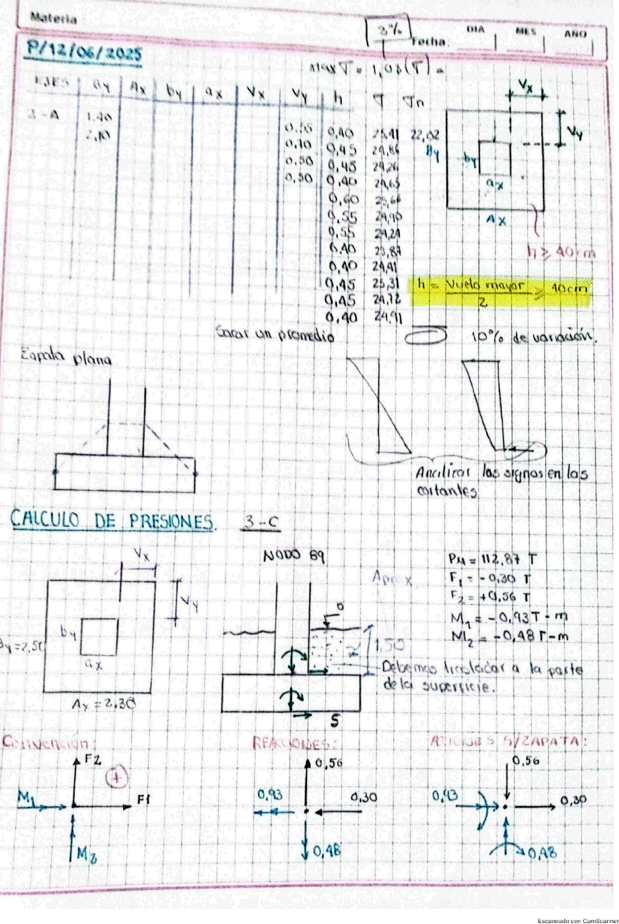 Materia
3%
Fecha:
DIA
MES
AÑO
P/12/06/2025
Max σ = 1,03(σ) =
EJES By Ax by ax Vx Vy h σ σn
3-A 1.40
2,10
0,40 25,41 22,02
0,45 24,86
0,50 0,45 24,26
0,50 0,40 24,65
0,60
0,55 24,90
0,55 24,24
0,40 23,87
0,40 24,41
0,45 25,31
0,45 24,72
0,40 24,91
Vx
Vy
By
by
ax
Ax
h ≥ 40cm
h = Vuelo mayor / 2 ≥ 40cm
Sacar un promedio
10% de variación.
Zapata plana
Analizar los signos en las
cortantes
CALCULO DE PRESIONES. 3-C
Vx
Vy
by
ax
By=2,50
Ax=2,30
NODO 89
Aprox
1,50
S
PM = 112,87 T
F1 = -0,30 T
F2 = +0,56 T
M1 = -0,93 T-m
M2 = -0,48 T-m
Debemos trasladar a la parte
de la superficie.
Convención:
F2
+
M1
F1
M2
REACCIONES:
0,56
0,93
0,30
0,48
ACCIONES S/ZAPATA:
0,56
0,93
0,30
0,48
Escaneado con CamScanner